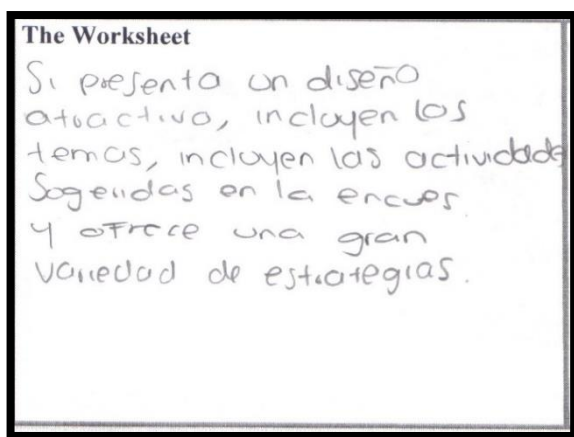 The Worksheet
Si presenta un diseño
atractivo, incluyen los
temas, incluyen las actividade
Sogeridas en la encues
y ofrece una gran
variedad de estrategias.